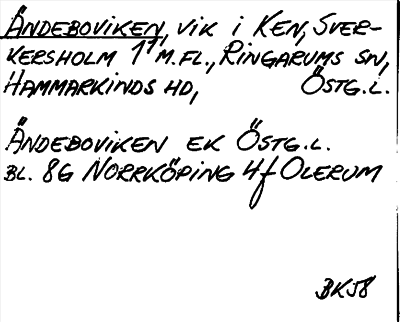 Ändeboviken, vik i Ken, Sver-
kersholm 1¹ m.fl., Ringarums sn,
Hammarkinds hd, Östg.l.
Ändeboviken ek Östg.l.
bl. 8G Norrköping 4f Olerum
BKJ8